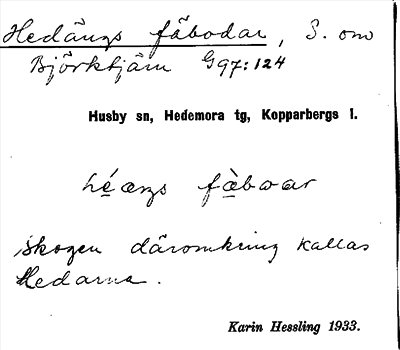 Hedängs fäbodar, S. om
Björktjärn G 97:124
Husby sn, Hedemora tg, Kopparbergs l.
fäboar
skogen däromkring kallas
Hedarna.
Karin Hessling 1933.